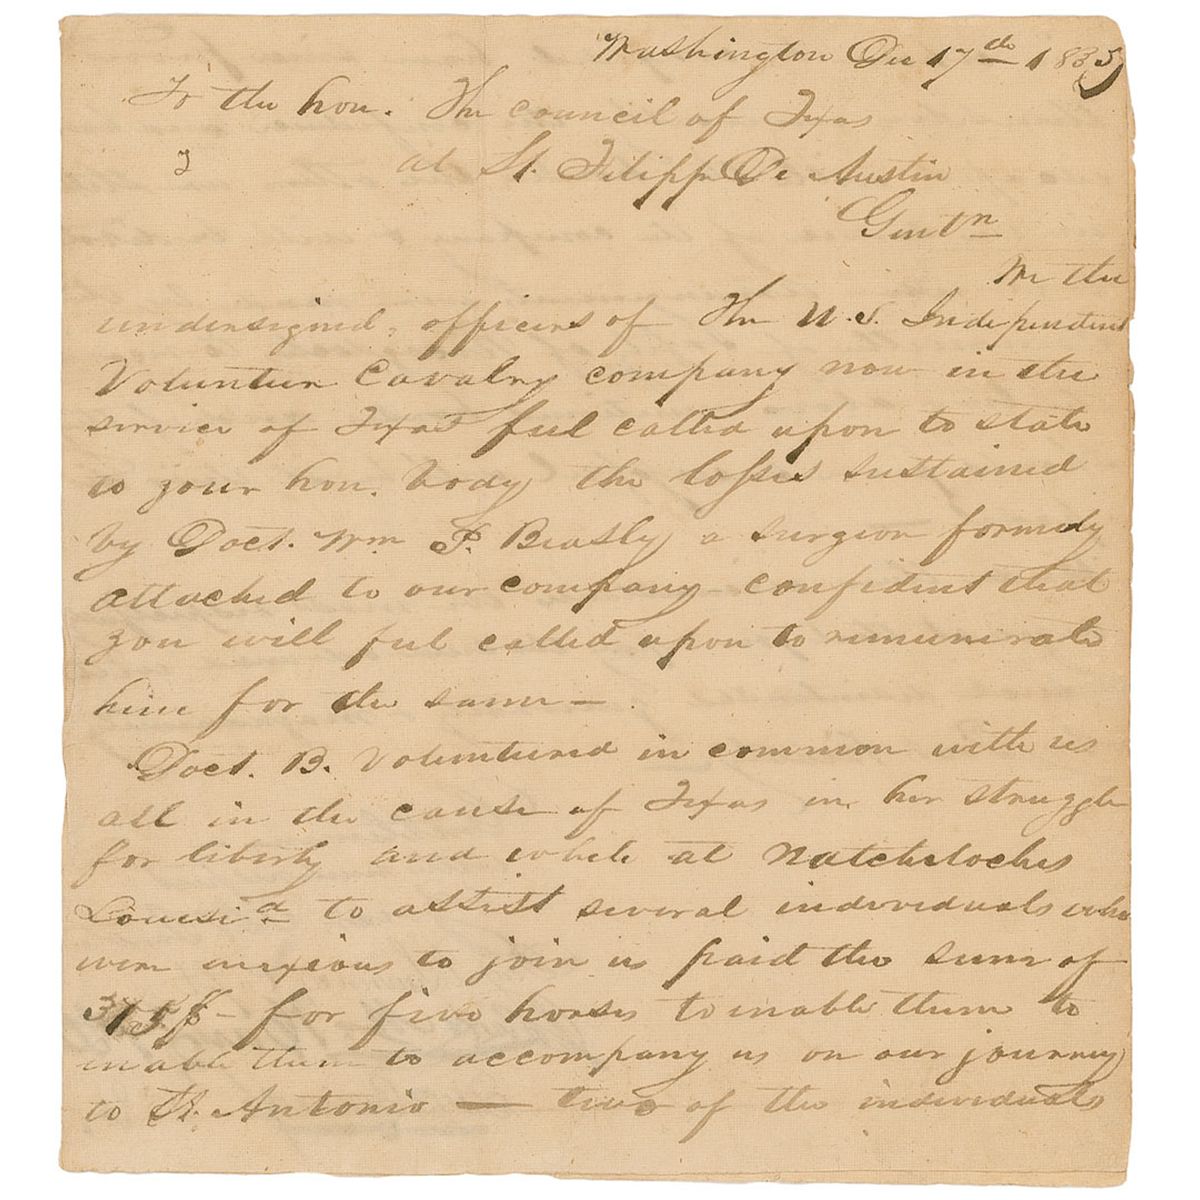 Washington Dec 17th 1835
To the hon. The council of Texas
at St. Filipp De Austin
Gentn
We the
undersigned, officers of The U.S. Independent
Volunteer Cavalry company now in the
service of Texas feel called upon to state
to your hon. body the losses sustained
by Doct. Wm P. Beasly a surgeon formerly
attached to our company - confident that
you will feel called upon to remunerate
him for the same -
Doct. B. Volunteered in common with us
all in the cause of Texas in her struggle
for liberty and while at Natchetoches
Louisi.a to assist several individuals who
were inxious to join us paid the sum of
375$ - for five horses to inable them to
inable them to accompany us on our journey
to St. Antonio — two of the individuals